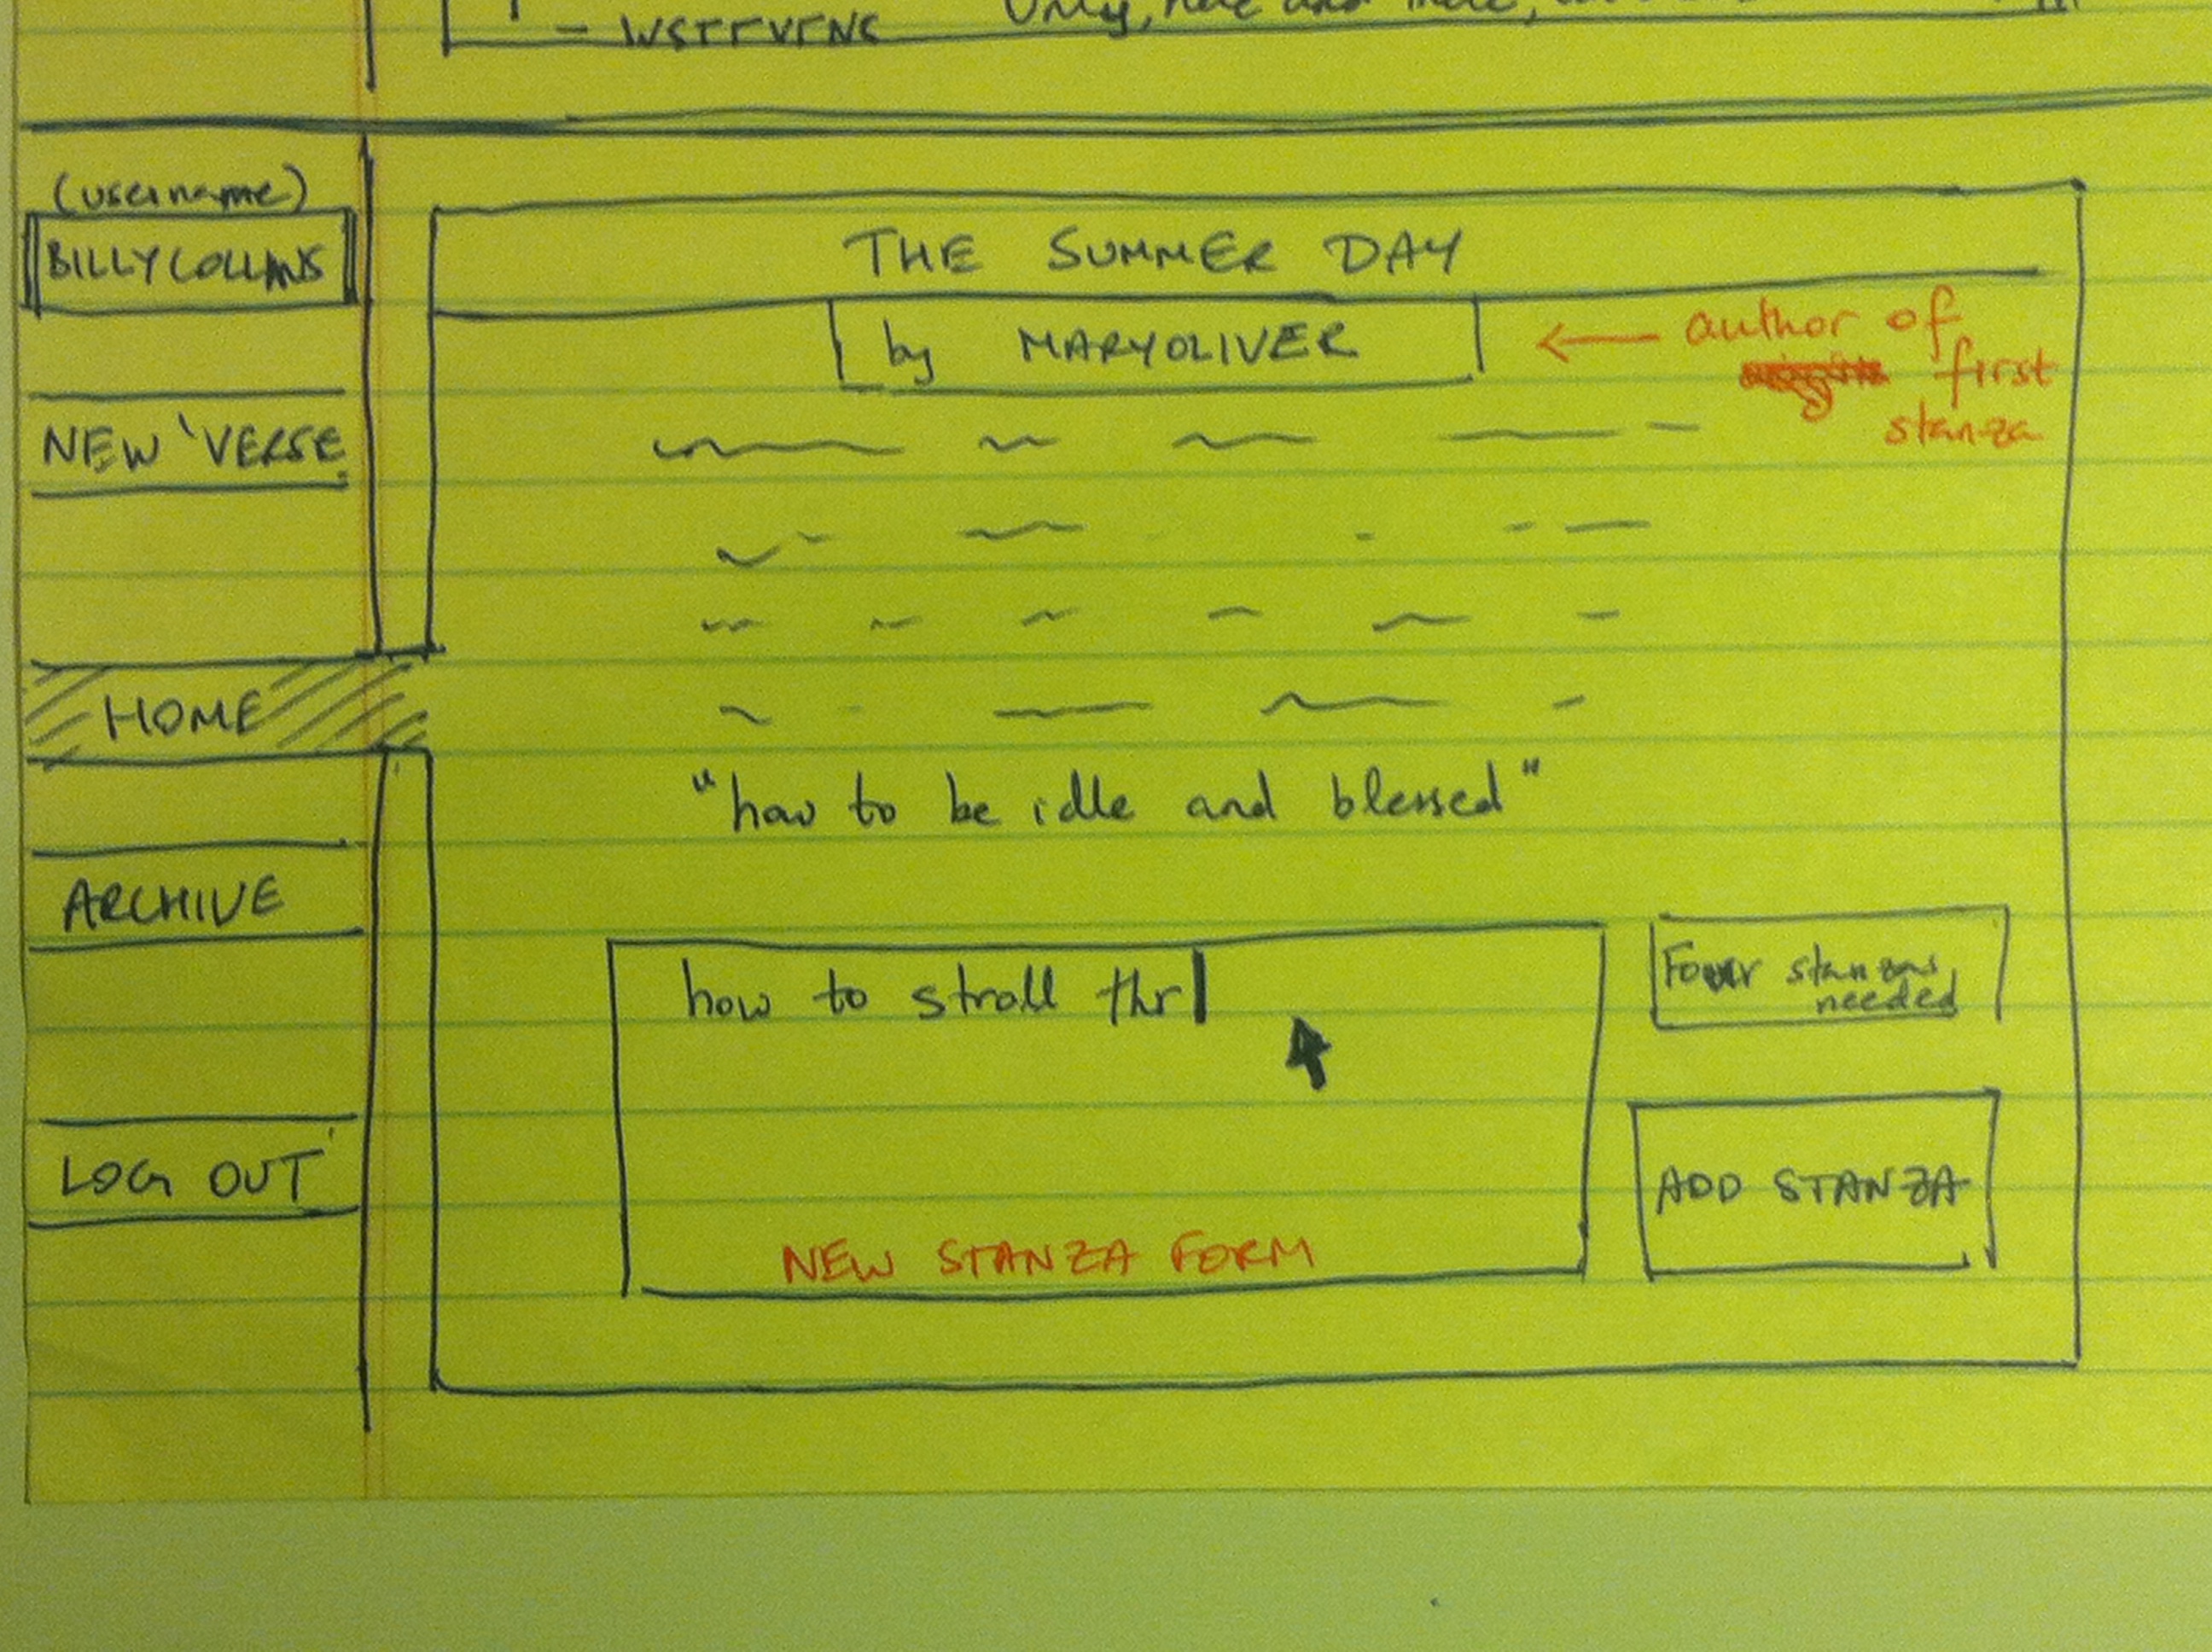 - WSTEVENS
Only, here and there,
(username)
BILLYCOLLINS
NEW VERSE
HOME
ARCHIVE
LOG OUT
THE SUMMER DAY
by MARYOLIVER
← author of
first
stanza
"how to be idle and blessed"
how to stroll thr
NEW STANZA FORM
Four stanzas
needed
ADD STANZA